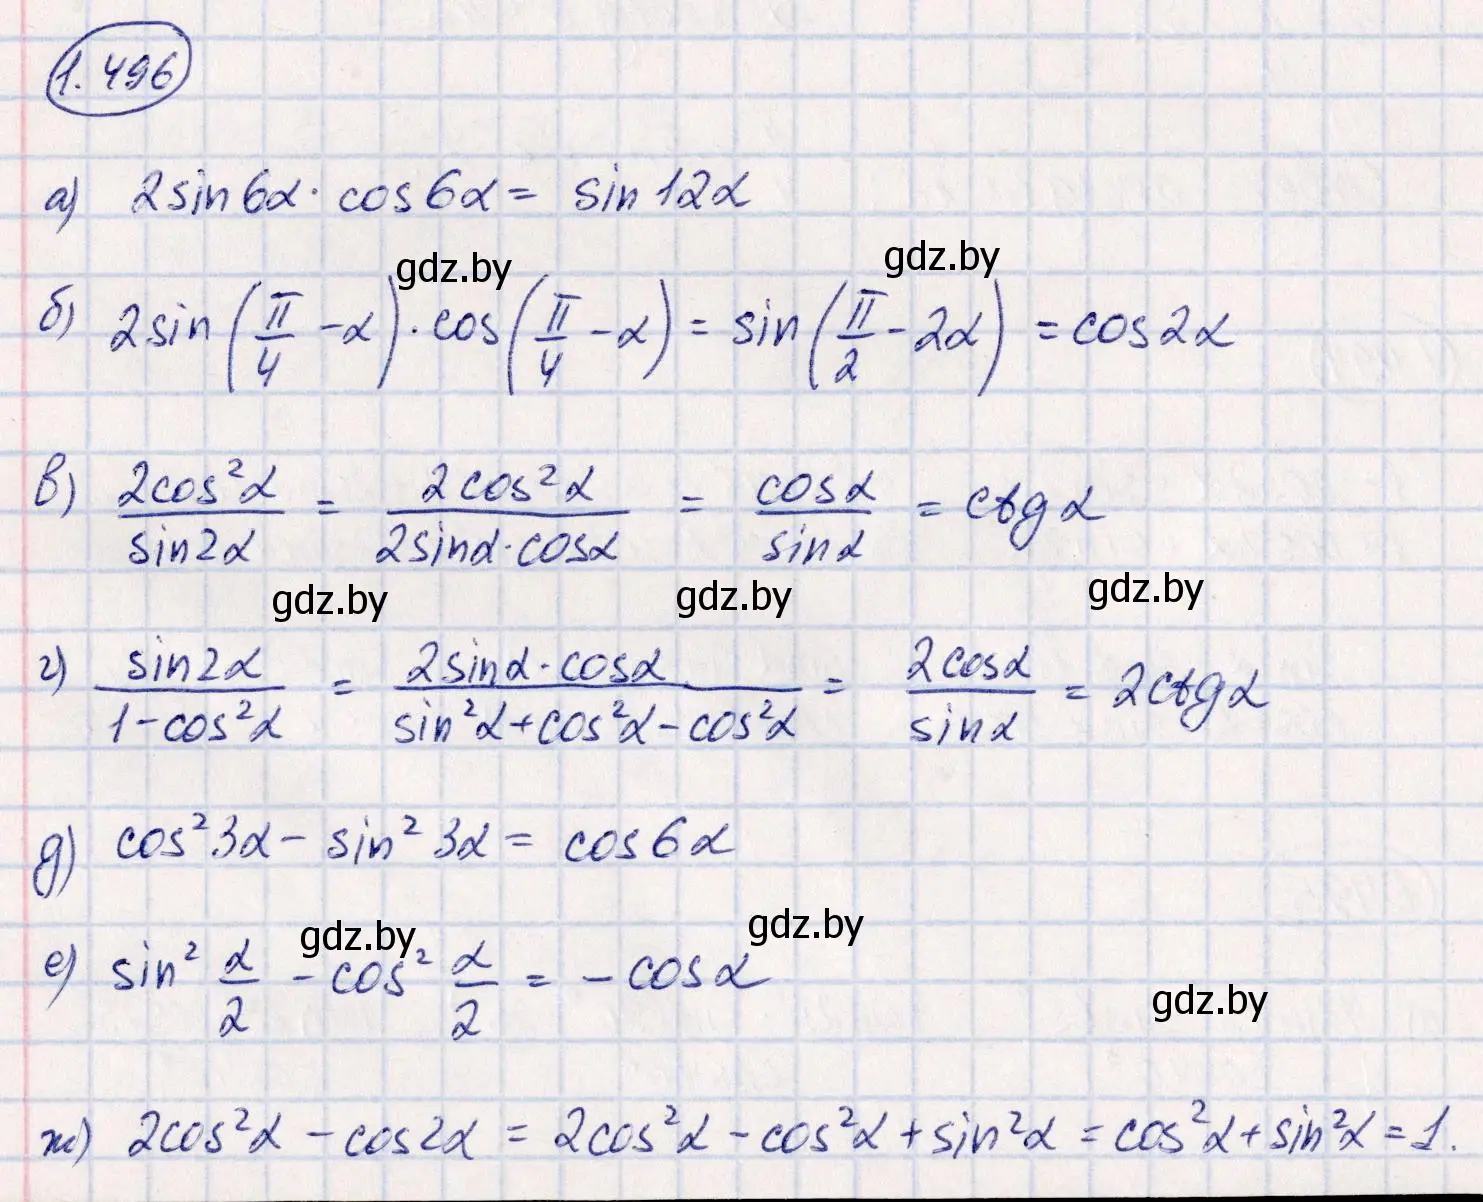 1.496
а) 2sin6α · cos6α = sin12α
gdz.by gdz.by
б) 2sin(π/4 − α) · cos(π/4 − α) = sin(π/2 − 2α) = cos2α
в) 2cos²α/sin2α = 2cos²α/2sinα·cosα = cosα/sinα = ctgα
gdz.by gdz.by gdz.by
г) sin2α/1−cos²α = 2sinα·cosα/sin²α+cos²α−cos²α = 2cosα/sinα = 2ctgα
д) cos²3α − sin²3α = cos6α
gdz.by gdz.by
е) sin² α/2 − cos² α/2 = − cosα
gdz.by
ж) 2cos²α − cos2α = 2cos²α − cos²α + sin²α = cos²α + sin²α = 1.